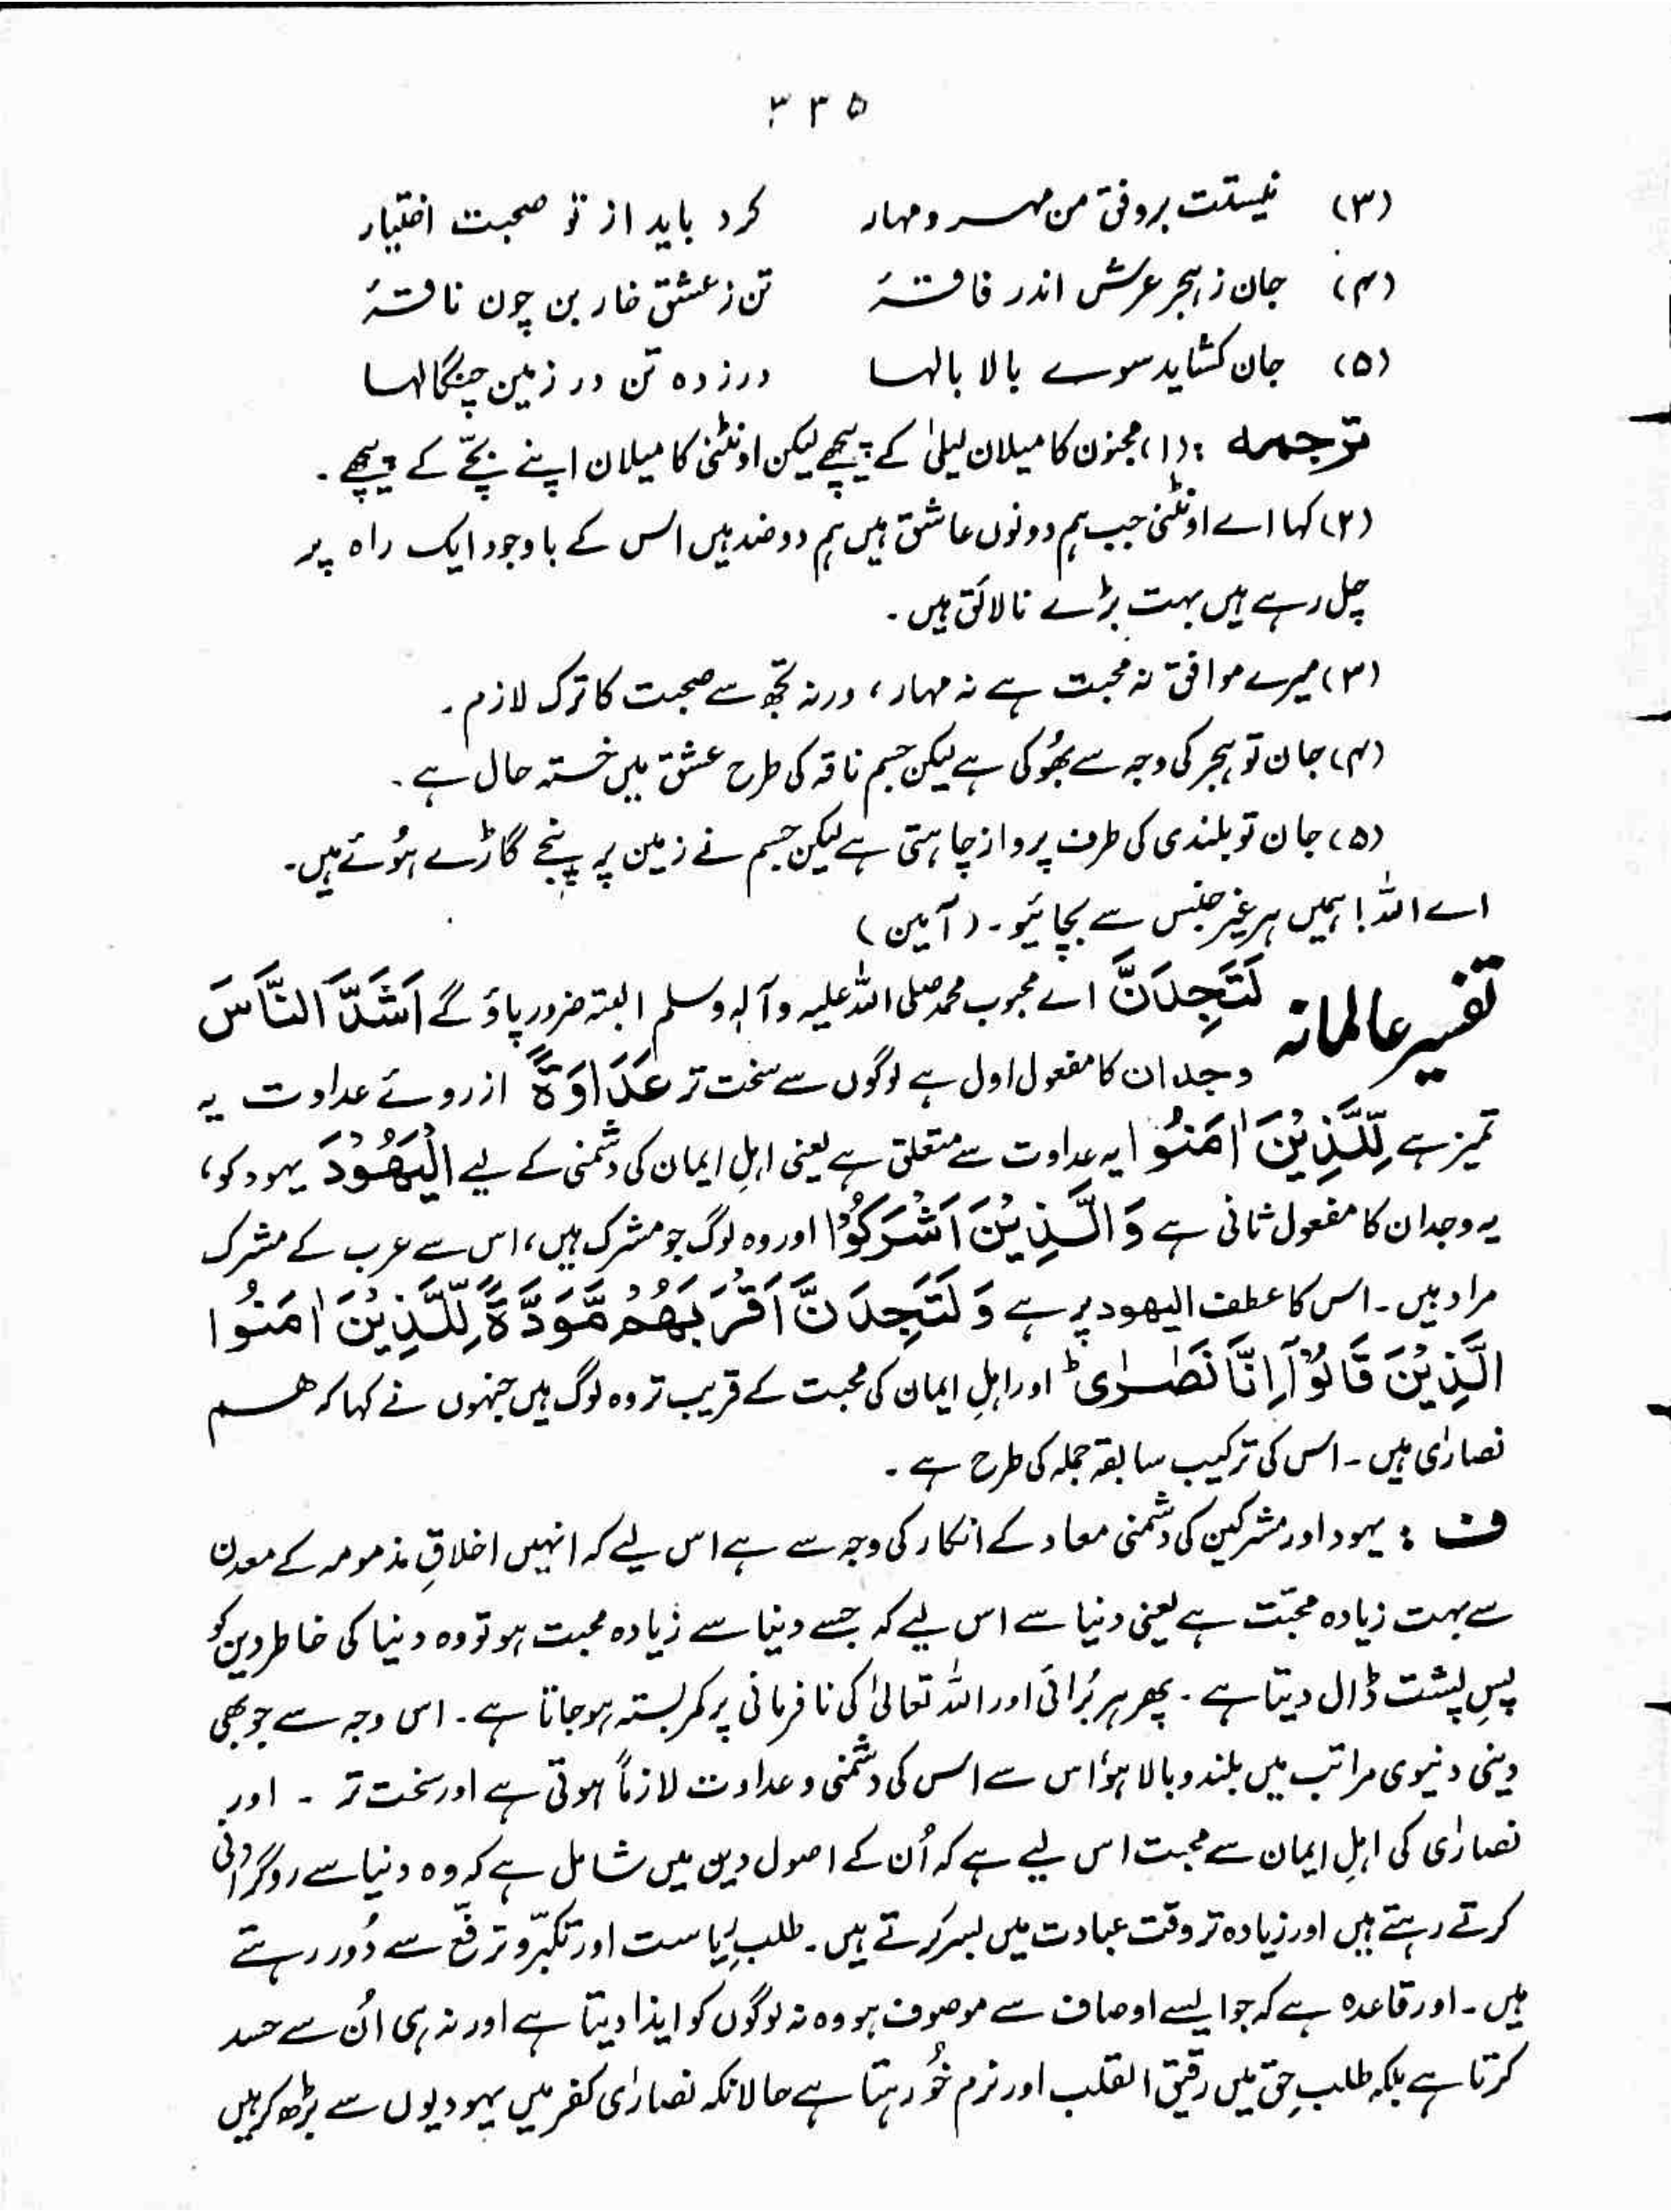 ۳۳۵
(۳) نیستت بروفق من مہر و مہار کرد باید از تو صحبت اختیار
(۴) جان ز ہجر عرش اندر فاقۂ تن ز عشق خار بن چون ناقۂ
(۵) جان کشاید سوے بالا بالہا در زدہ تن در زمین چنگالہا
ترجمہ : (۱) مجنون کا میلان لیلیٰ کے پیچھے لیکن اونٹنی کا میلان اپنے بچّے کے پیچھے ۔
(۲) کہا اے اونٹنی جب ہم دونوں عاشق ہیں ہم دو ضد ہیں اس کے باوجود ایک راہ پر
چل رہے ہیں بہت بڑے نالائق ہیں ۔
(۳) میرے موافق نہ محبت ہے نہ مہار ، ورنہ تجھ سے صحبت کا ترک لازم ۔
(۴) جان تو ہجر کی وجہ سے بھُوکی ہے لیکن جسم ناقہ کی طرح عشق میں خستہ حال ہے ۔
(۵) جان تو بلندی کی طرف پرواز چاہتی ہے لیکن جسم نے زمین پر پنجے گاڑے ہُوئے ہیں ۔
اے اللہ! ہمیں ہر غیر جنس سے بچائیو ۔ (آمین)
تفسیر عالمانہ لَتَجِدَنَّ اے محبوب محمد صلی اللہ علیہ وآلہٖ وسلم البتہ ضرور پاؤ گے اَشَدَّ النَّاسَ
وجدان کا مفعول اول ہے لوگوں سے سخت تر عَدَاوَةً ازروئے عداوت یہ
تمیز ہے لِّلَّذِيْنَ اٰمَنُوا یہ عداوت سے متعلق ہے یعنی اہلِ ایمان کی دشمنی کے لیے الْيَهُوْدَ یہود کو ،
یہ وجدان کا مفعول ثانی ہے وَالَّذِيْنَ اَشْرَكُوْا اور وہ لوگ جو مشرک ہیں ، اس سے عرب کے مشرک
مراد ہیں ۔ اس کا عطف الیھود پر ہے وَلَتَجِدَنَّ اَقْرَبَهُمْ مَّوَدَّةً لِّلَّذِيْنَ اٰمَنُوا
الَّذِيْنَ قَالُوْٓا اِنَّا نَصٰرٰى ؕ اور اہلِ ایمان کی محبت کے قریب تر وہ لوگ ہیں جنہوں نے کہا کہ ھم
نصارٰی ہیں ۔ اس کی ترکیب سابقہ جملہ کی طرح ہے ۔
ف : یہود اور مشرکین کی دشمنی معاد کے انکار کی وجہ سے ہے اس لیے کہ انہیں اخلاقِ مذمومہ کے معدن
سے بہت زیادہ محبّت ہے یعنی دنیا سے اس لیے کہ جسے دنیا سے زیادہ محبت ہو تو وہ دنیا کی خاطر دین کو
پسِ پشت ڈال دیتا ہے ۔ پھر ہر بُرائی اور اللہ تعالیٰ کی نافرمانی پر کمر بستہ ہو جاتا ہے ۔ اس وجہ سے جو بھی
دینی دنیوی مراتب میں بلند و بالا ہوُا اس سے اس کی دشمنی و عداوت لازماً ہوتی ہے اور سخت تر ۔ اور
نصارٰی کی اہلِ ایمان سے محبت اس لیے ہے کہ اُن کے اصول دین میں شامل ہے کہ وہ دنیا سے روگردانی
کرتے رہتے ہیں اور زیادہ تر وقت عبادت میں بسر کرتے ہیں ۔ طلبِ ریاست اور تکبّر و ترفّع سے دُور رہتے
ہیں ۔ اور قاعدہ ہے کہ جو ایسے اوصاف سے موصوف ہو وہ نہ لوگوں کو ایذا دیتا ہے اور نہ ہی اُن سے حسد
کرتا ہے بلکہ طلبِ حق میں رقیق القلب اور نرم خُو رہتا ہے حالانکہ نصارٰی کفر میں یہودیوں سے بڑھ کر ہیں